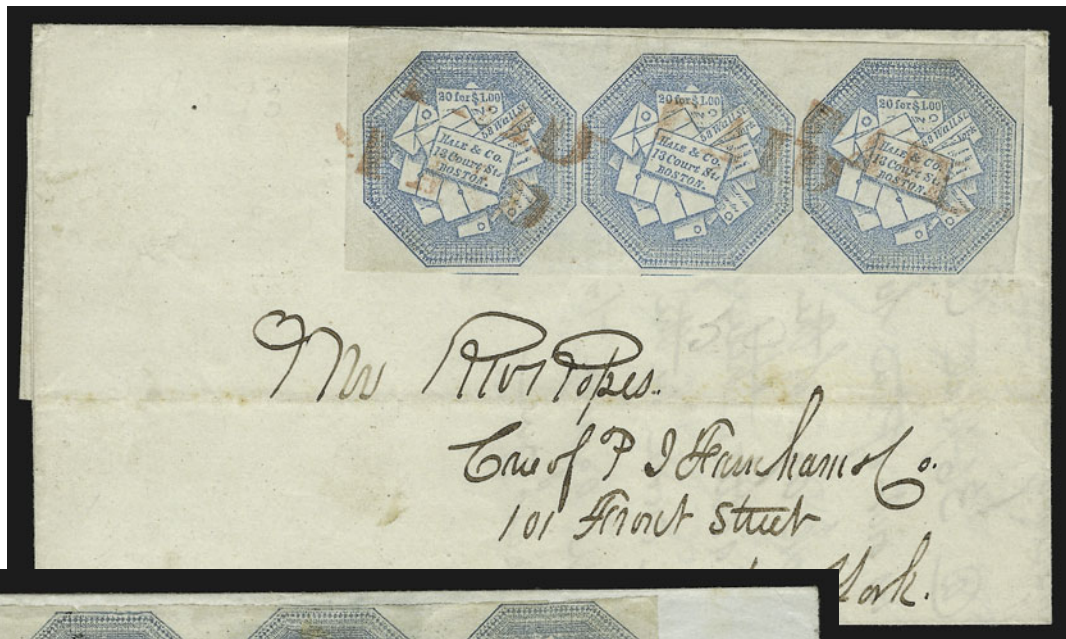 20 for $1.00
58 Wall St.
York
HALE & Co.
13 Court St.
BOSTON.
20 for $1.00
58 Wall St.
York
HALE & Co.
13 Court St.
BOSTON.
20 for $1.00
58 Wall St.
York
HALE & Co.
13 Court St.
BOSTON.
Mr
Ropes.
Care of P I Farnham & Co.
101 Front Street
York.